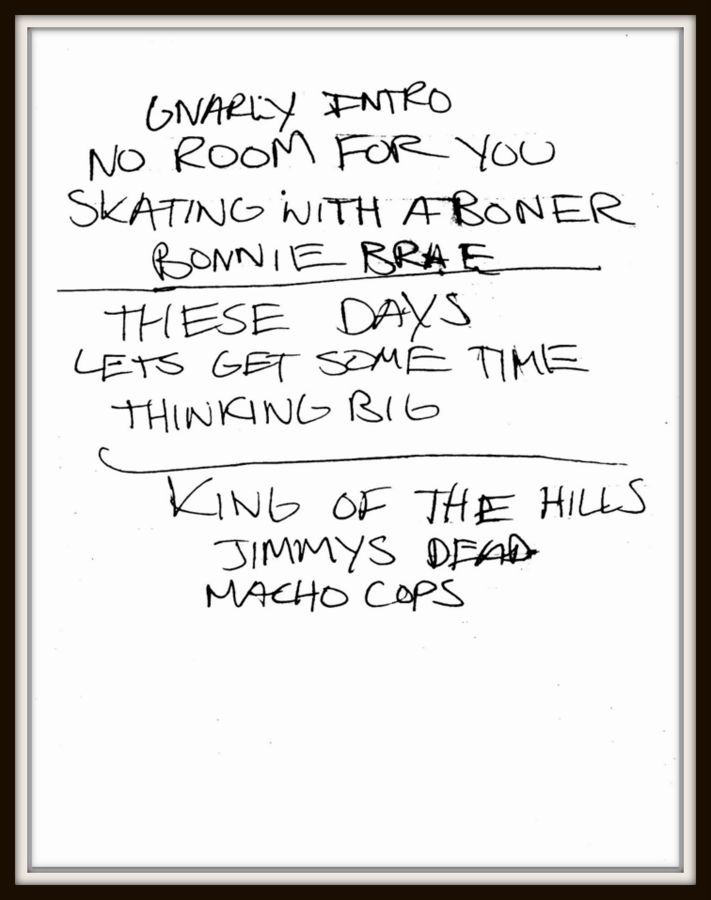 GNARLY INTRO
NO ROOM FOR YOU
SKATING WITH A BONER
BONNIE BRAE
THESE DAYS
LETS GET SOME TIME
THINKING BIG
KING OF THE HILLS
JIMMYS DEAD
MACHO COPS